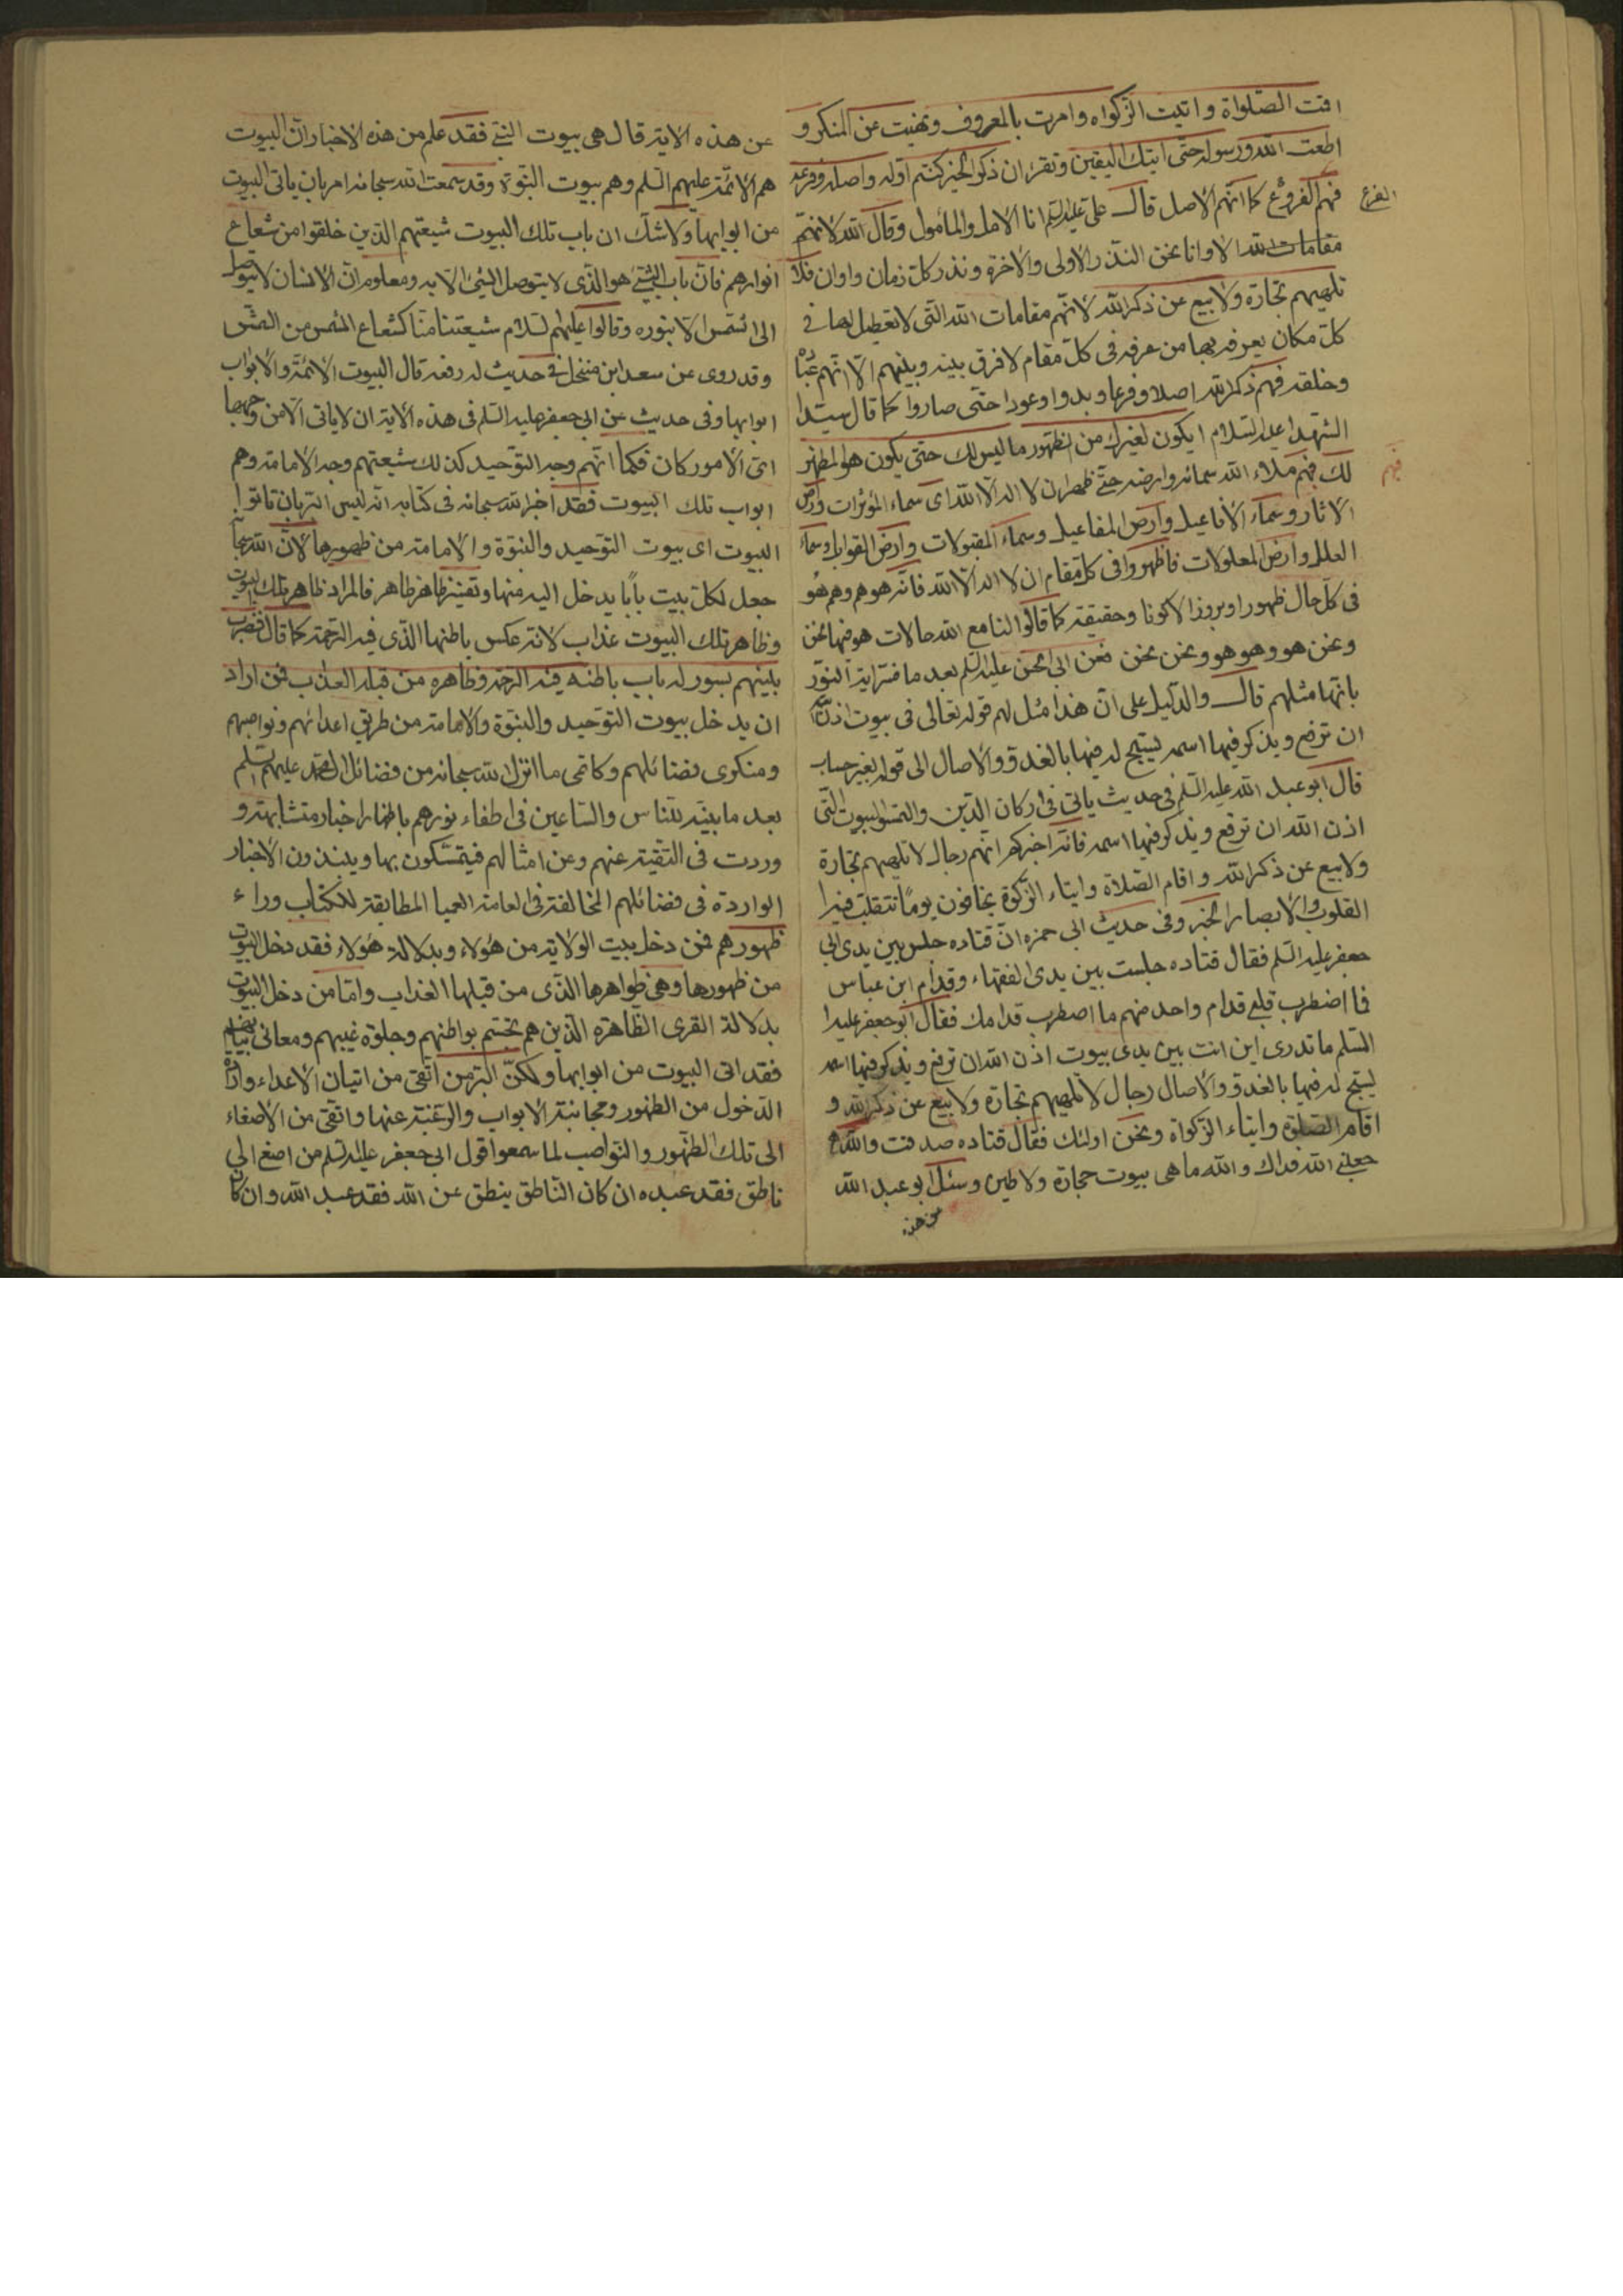 اقمت الصلواة واتيت الزكواه وامرت بالمعروف ونهيت عن المنكر و
اطعت الله ورسوله حتى اتيك اليقين وتقرء ان ذكر الخير كنتم اوله واصله وفرعه
فهم الفروع كما انهم الاصل قال على عليه السلم انا الامل والمأمول وقال الله لانهم
الفرع
مقامات الله الا وانا نحن النذر الاولى والاخرة ونذر كل زمان واوان فلا
تلهيهم تجارة ولا بيع عن ذكر الله لانهم مقامات الله التى لا تعطيل لها فى
كل مكان يعرفه بها من عرفه فى كل مقام لا فرق بينه وبينهم الا انهم عباده
وخلقه فهم ذكر الله اصلا وفرعا وبدوا وعودا حتى صاروا كما قال سيد
الشهدا عليه السلام ايكون لغيرك من الظهور ما ليس لك حتى يكون هو المظهر
لك فبهم ملاء الله سمائه وارضه حتى ظهر ان لا اله الا الله اى سماء المؤثرات وارض
فبهم
الاثار وسماء الافاعيل وارض المفاعيل وسماء المقبولات وارض القوابل وسماء
العلل وارض المعلولات فاظهروا فى كل مقام ان لا اله الا الله فانه هو هم وهم هو
فى كل حال ظهورا وبروزا لا كونا وحقيقة كما قالوا لنا مع الله حالات هو فيها نحن
ونحن هو وهو هو ونحن نحن فعن ابى الحسن عليه السلم بعد ما فسر اية النور
بانها مثلهم قال والدليل على ان هذا مثل لهم قوله تعالى فى بيوت اذن الله
ان ترفع ويذكر فيها اسمه يسبح له فيها بالغدو والاصال الى قوله بغير حساب
قال ابو عبد الله عليه السلم فى حديث ياتى فى اركان الدين والتمسوا البيوت التى
اذن الله ان ترفع ويذكر فيها اسمه فانه اخبركم انهم رجال لا تلهيهم تجارة
ولا بيع عن ذكر الله واقام الصلاة وايتاء الزكوة يخافون يوما تتقلب فيه
القلوب والابصار الخبر وفى حديث ابى حمزه ان قتاده جلس بين يدى ابى
جعفر عليه السلم فقال قتاده جلست بين يدى الفقهاء وقدام ابن عباس
فما اضطرب قلبى قدام واحد منهم ما اضطرب قدامك فقال ابو جعفر عليه
السلم ما تدرى اين انت بين يدى بيوت اذن الله ان ترفع ويذكر فيها اسمه
يسبح له فيها بالغدو والاصال رجال لا تلهيهم تجارة ولا بيع عن ذكر الله و
اقام الصلوة وايتاء الزكواة ونحن اولئك فقال قتاده صدقت والله
جعلنى الله فداك والله ما هى بيوت حجارة ولا طين وسئل ابو عبد الله
عن هذه
عن هذه الاية قال هى بيوت النبى فقد علم من هذه الاخبار ان البيوت
هم الائمة عليهم السلم وهم بيوت النبوة وقد سمعت الله سبحانه امر بان ياتى البيوت
من ابوابها ولا شك ان باب تلك البيوت شيعتهم الذين خلقوا من شعاع
انوارهم فان باب الشئ هو الذى لا يتوصل الى الشئ الا به ومعلوم ان الانسان لا يتوصل
الى الشمس الا بنوره وقالوا عليهم السلام شيعتنا منا كشعاع الشمس من الشمس
وقد روى عن سعد ابن منخل فى حديث له رفعه قال البيوت الائمة والابواب
ابوابها وفى حديث عن ابى جعفر عليه السلم فى هذه الاية ان لا ياتى الامر من وجهها
اى الامور كان فكما انهم وجه التوحيد كذلك شيعتهم وجه الامامة وهم
ابواب تلك البيوت فقد اخبر الله سبحانه فى كتابه انه ليس البر بان تاتوا
البيوت اى بيوت التوحيد والنبوة والامامة من ظهورها لان الله سبحانه
جعل لكل بيت بابا يدخل اليه منها وتعيين ظاهر ظاهر فالمراد ظاهر تلك البيوت
وظاهر تلك البيوت عذاب لانه عكس باطنها الذى فيه الرحمة كما قال فضرب
بينهم بسور له باب باطنه فيه الرحمة وظاهره من قبله العذاب فمن اراد
ان يدخل بيوت التوحيد والنبوة والامامة من طريق اعدائهم ونواصبهم
ومنكرى فضائلهم وكاتمى ما انزل الله سبحانه من فضائل ال محمد عليهم السلم
بعد ما بينه للناس والساعين فى اطفاء نورهم باظهار اخبار متشابهة و
وردت فى التقية عنهم وعن امثالهم فيتمسكون بها وينبذون الاخبار
الواردة فى فضائلهم المخالفة فى العامة العميا المطابقة للكتاب وراء
ظهورهم فمن دخل بيت الولاية من هؤلاء وبدلالة هؤلاء فقد دخل البيوت
من ظهورها وهى ظواهرها الذى من قبلها العذاب واما من دخل البيوت
بدلالة القرى الظاهرة الذين هم بواطنهم وجلوة غيبهم ومعانى
فقد اتى البيوت من ابوابها ولكن البر من اتقى من اتيان الاعداء
الدخول من الظهور ومجانبة الابواب والرغبة عنها واتقى من الاصغاء
الى تلك الظهور والنواصب لما سمعوا قول ابى جعفر عليه السلم من اصغ الى
ناطق فقد عبده ان كان الناطق ينطق عن الله فقد عبد الله وان كان